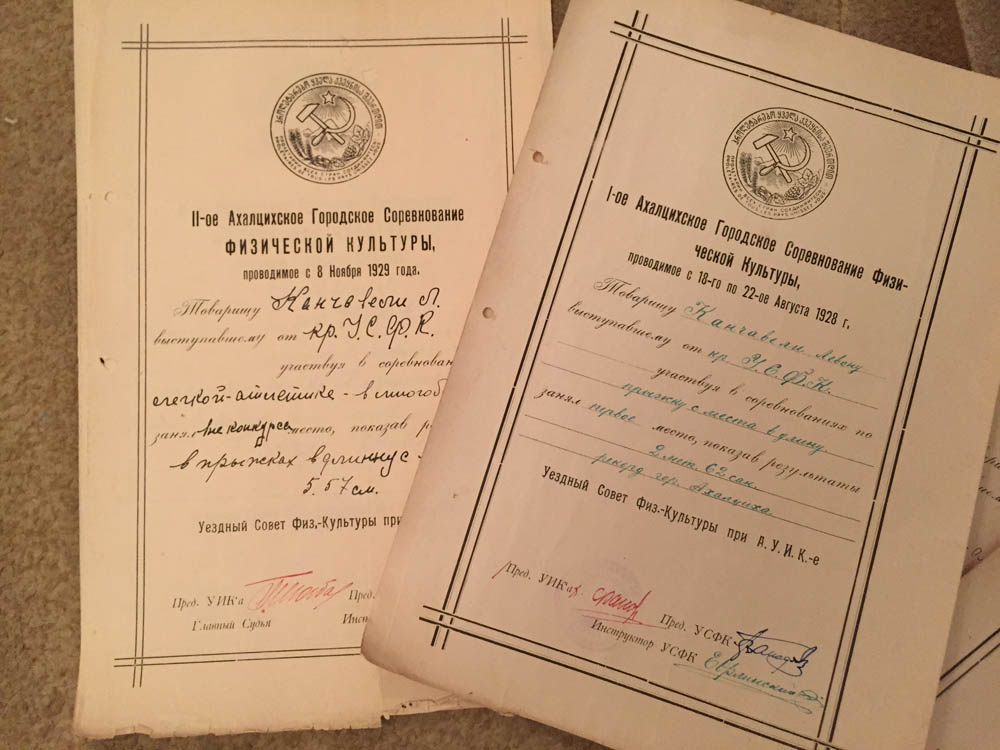 II-ое Ахалцихское Городское Соревнование
ФИЗИЧЕСКОЙ КУЛЬТУРЫ,
проводимое с 8 Ноября 1929 года.
Товарищу Канчавели Л.
выступавшему от кр. У.С.Ф.К.
участвуя в соревнован
легкой-атлетике - в многоб
занял вне конкурса место, показав р
в прыжках в длинну с
5.57 см.
Уездный Совет Физ.-Культуры при
Пред. УИК'а
Пред.
Главный Судья
Инс
ПРОЛЕТАРИИ ВСЕХ СТРАН СОЕДИНЯЙТЕСЬ
I-ое Ахалцихское Городское Соревнование Физи-
ческой Культуры,
проводимое с 18-го по 22-ое Августа 1928 г.
Товарищу Канчавели Левану
выступавшему от кр У.С.Ф.К.
участвуя в соревнованиях по
прыжку с места в длину
занял первое место, показав розультаты
2 мет. 62 сан.
рекорд гор. Ахалциха
Уездный Совет Физ.-Культуры при А. У. И. К.-е
Пред. УИК'а
Пред. УСФК
Инструктор УСФК